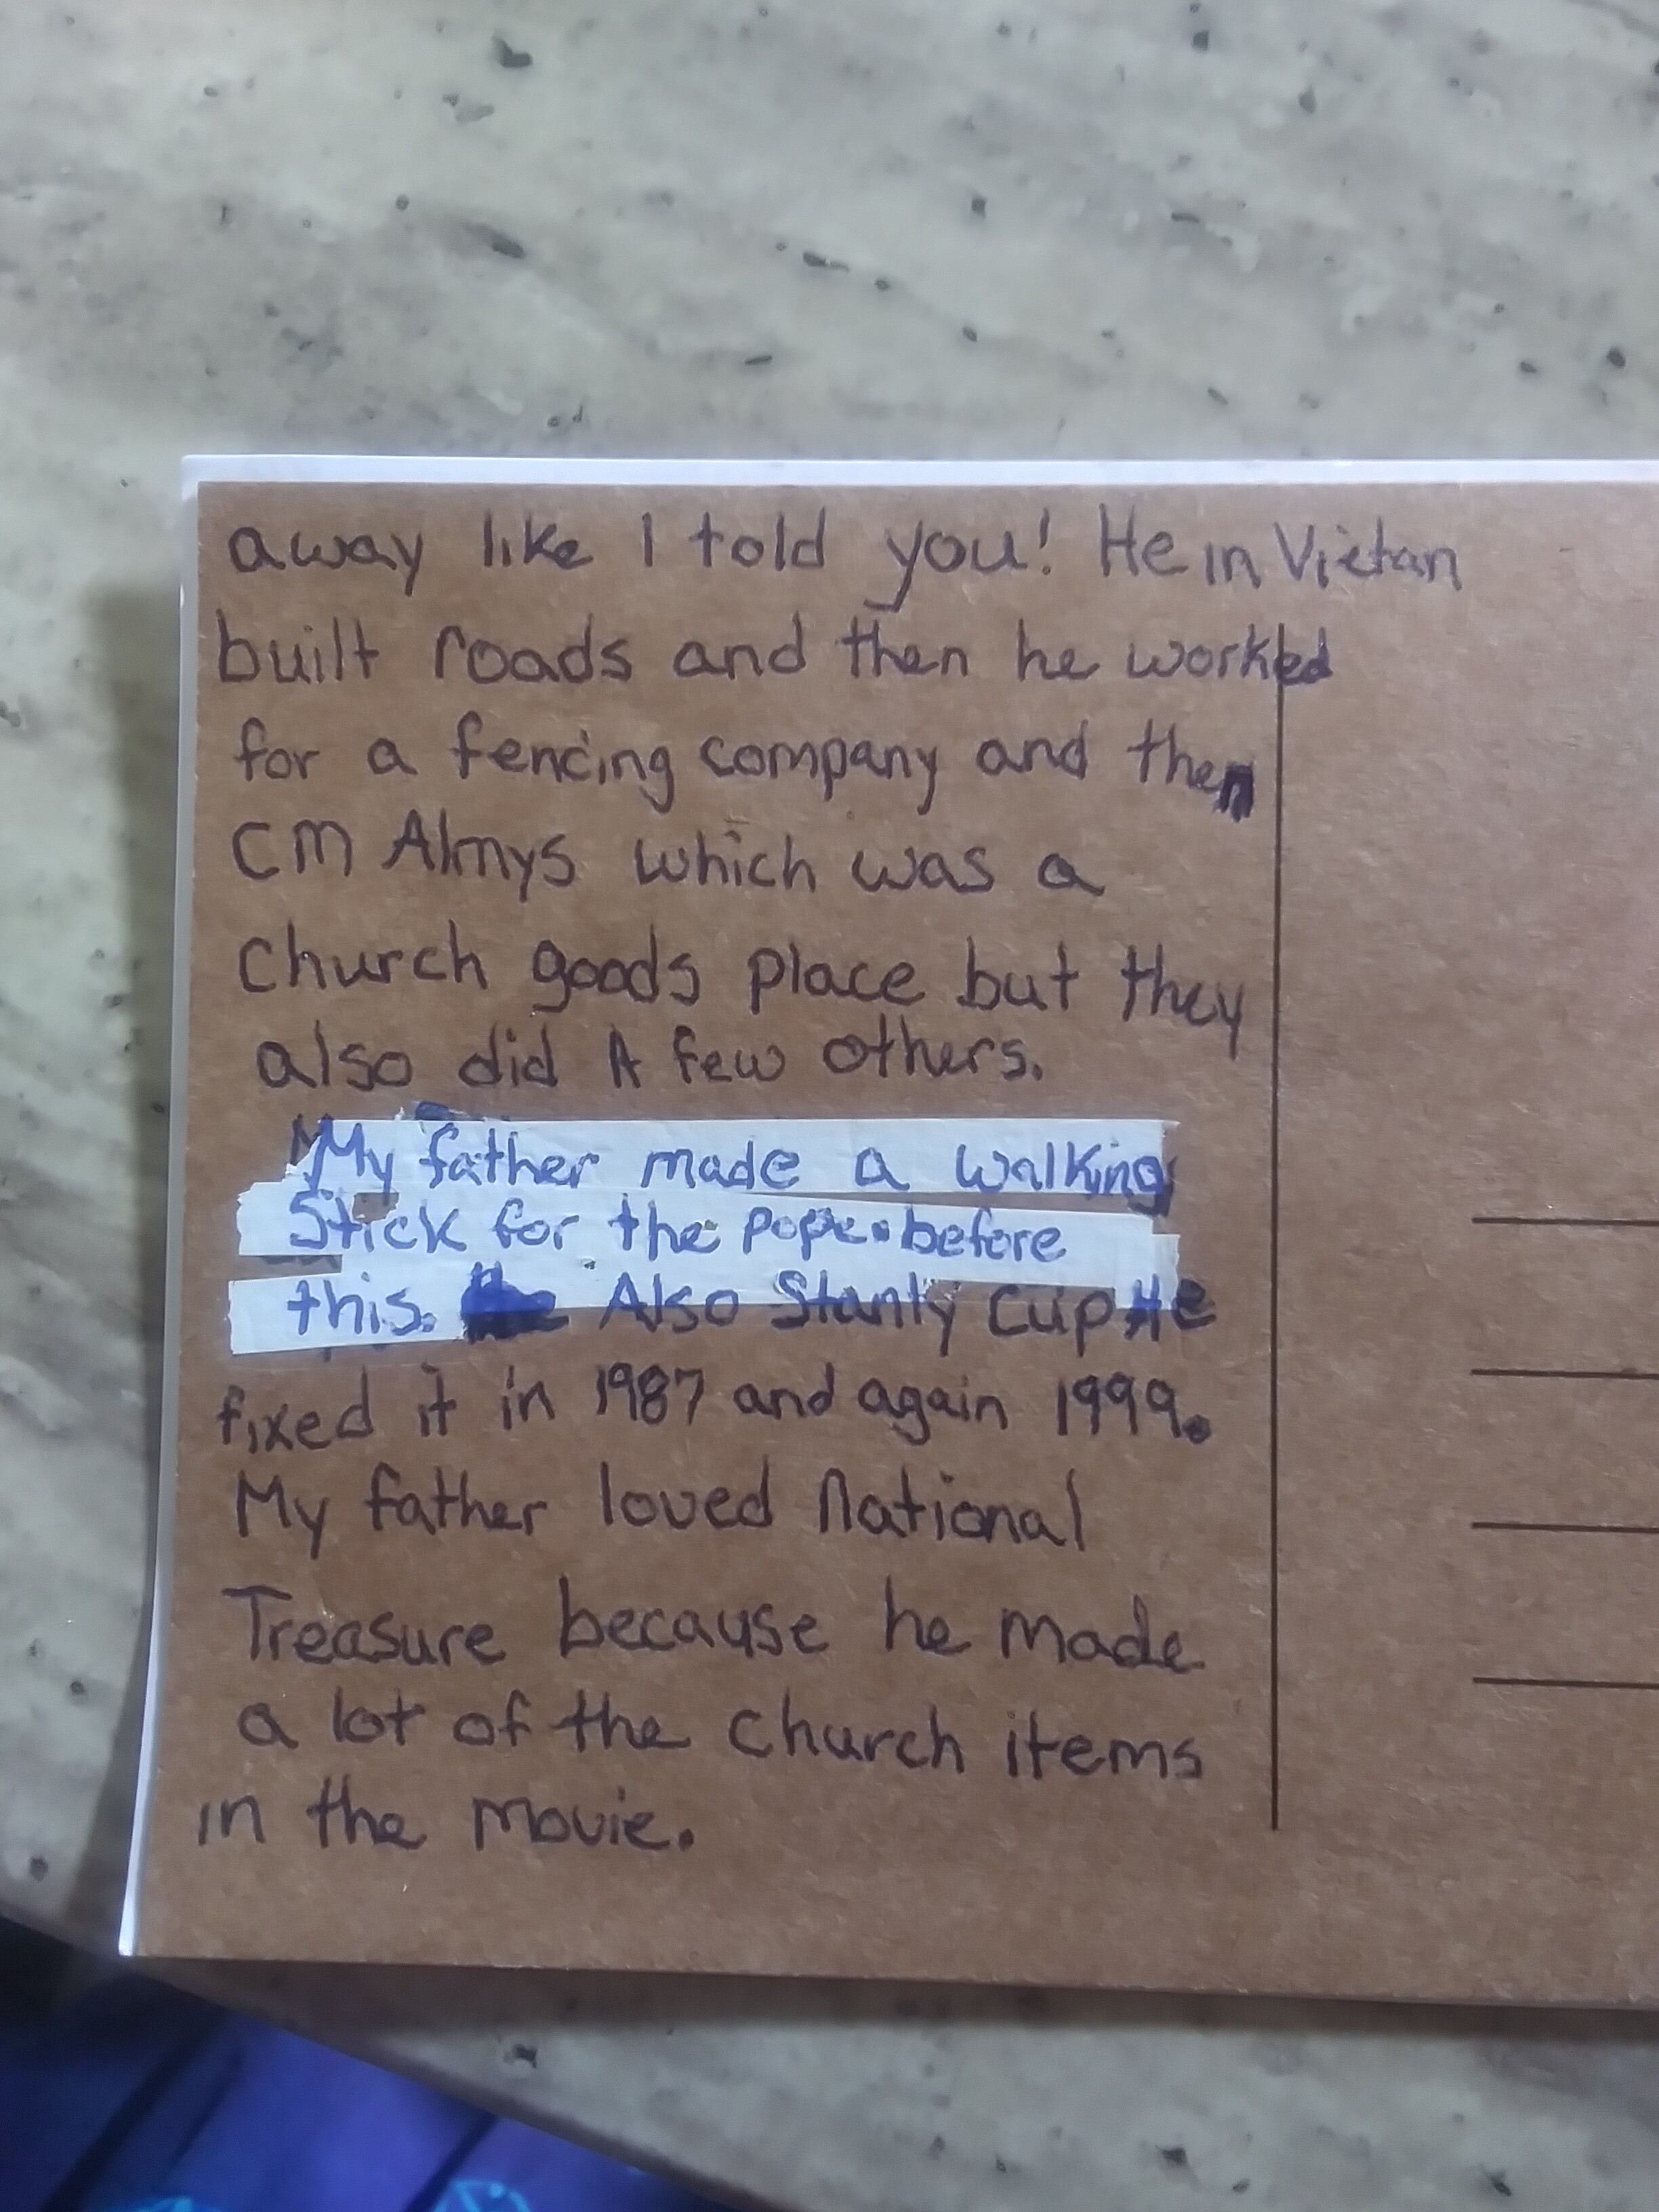 away like I told you! He in Vietan
built roads and then he worked
for a fencing company and then
CM Almys which was a
Church goods place but they
also did A few others.
My father made a walking
Stick for the pope. before
this. Also Stanly Cup He
fixed it in 1987 and again 1999.
My father loved National
Treasure because he made
a lot of the church items
in the movie.